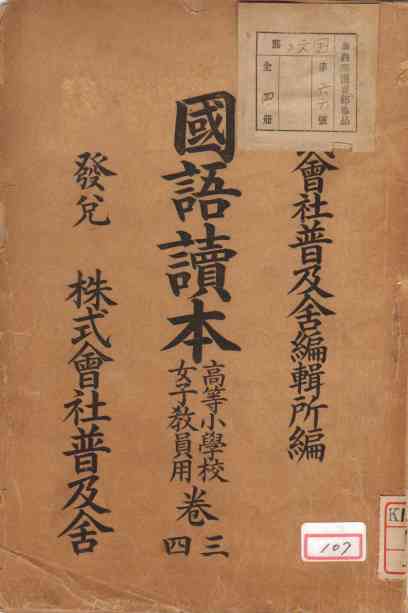 式會社普及舍編輯所編
國語讀本
高等小學校
女子教員用
卷三
四
發兌 株式會社普及舍
全四册
107